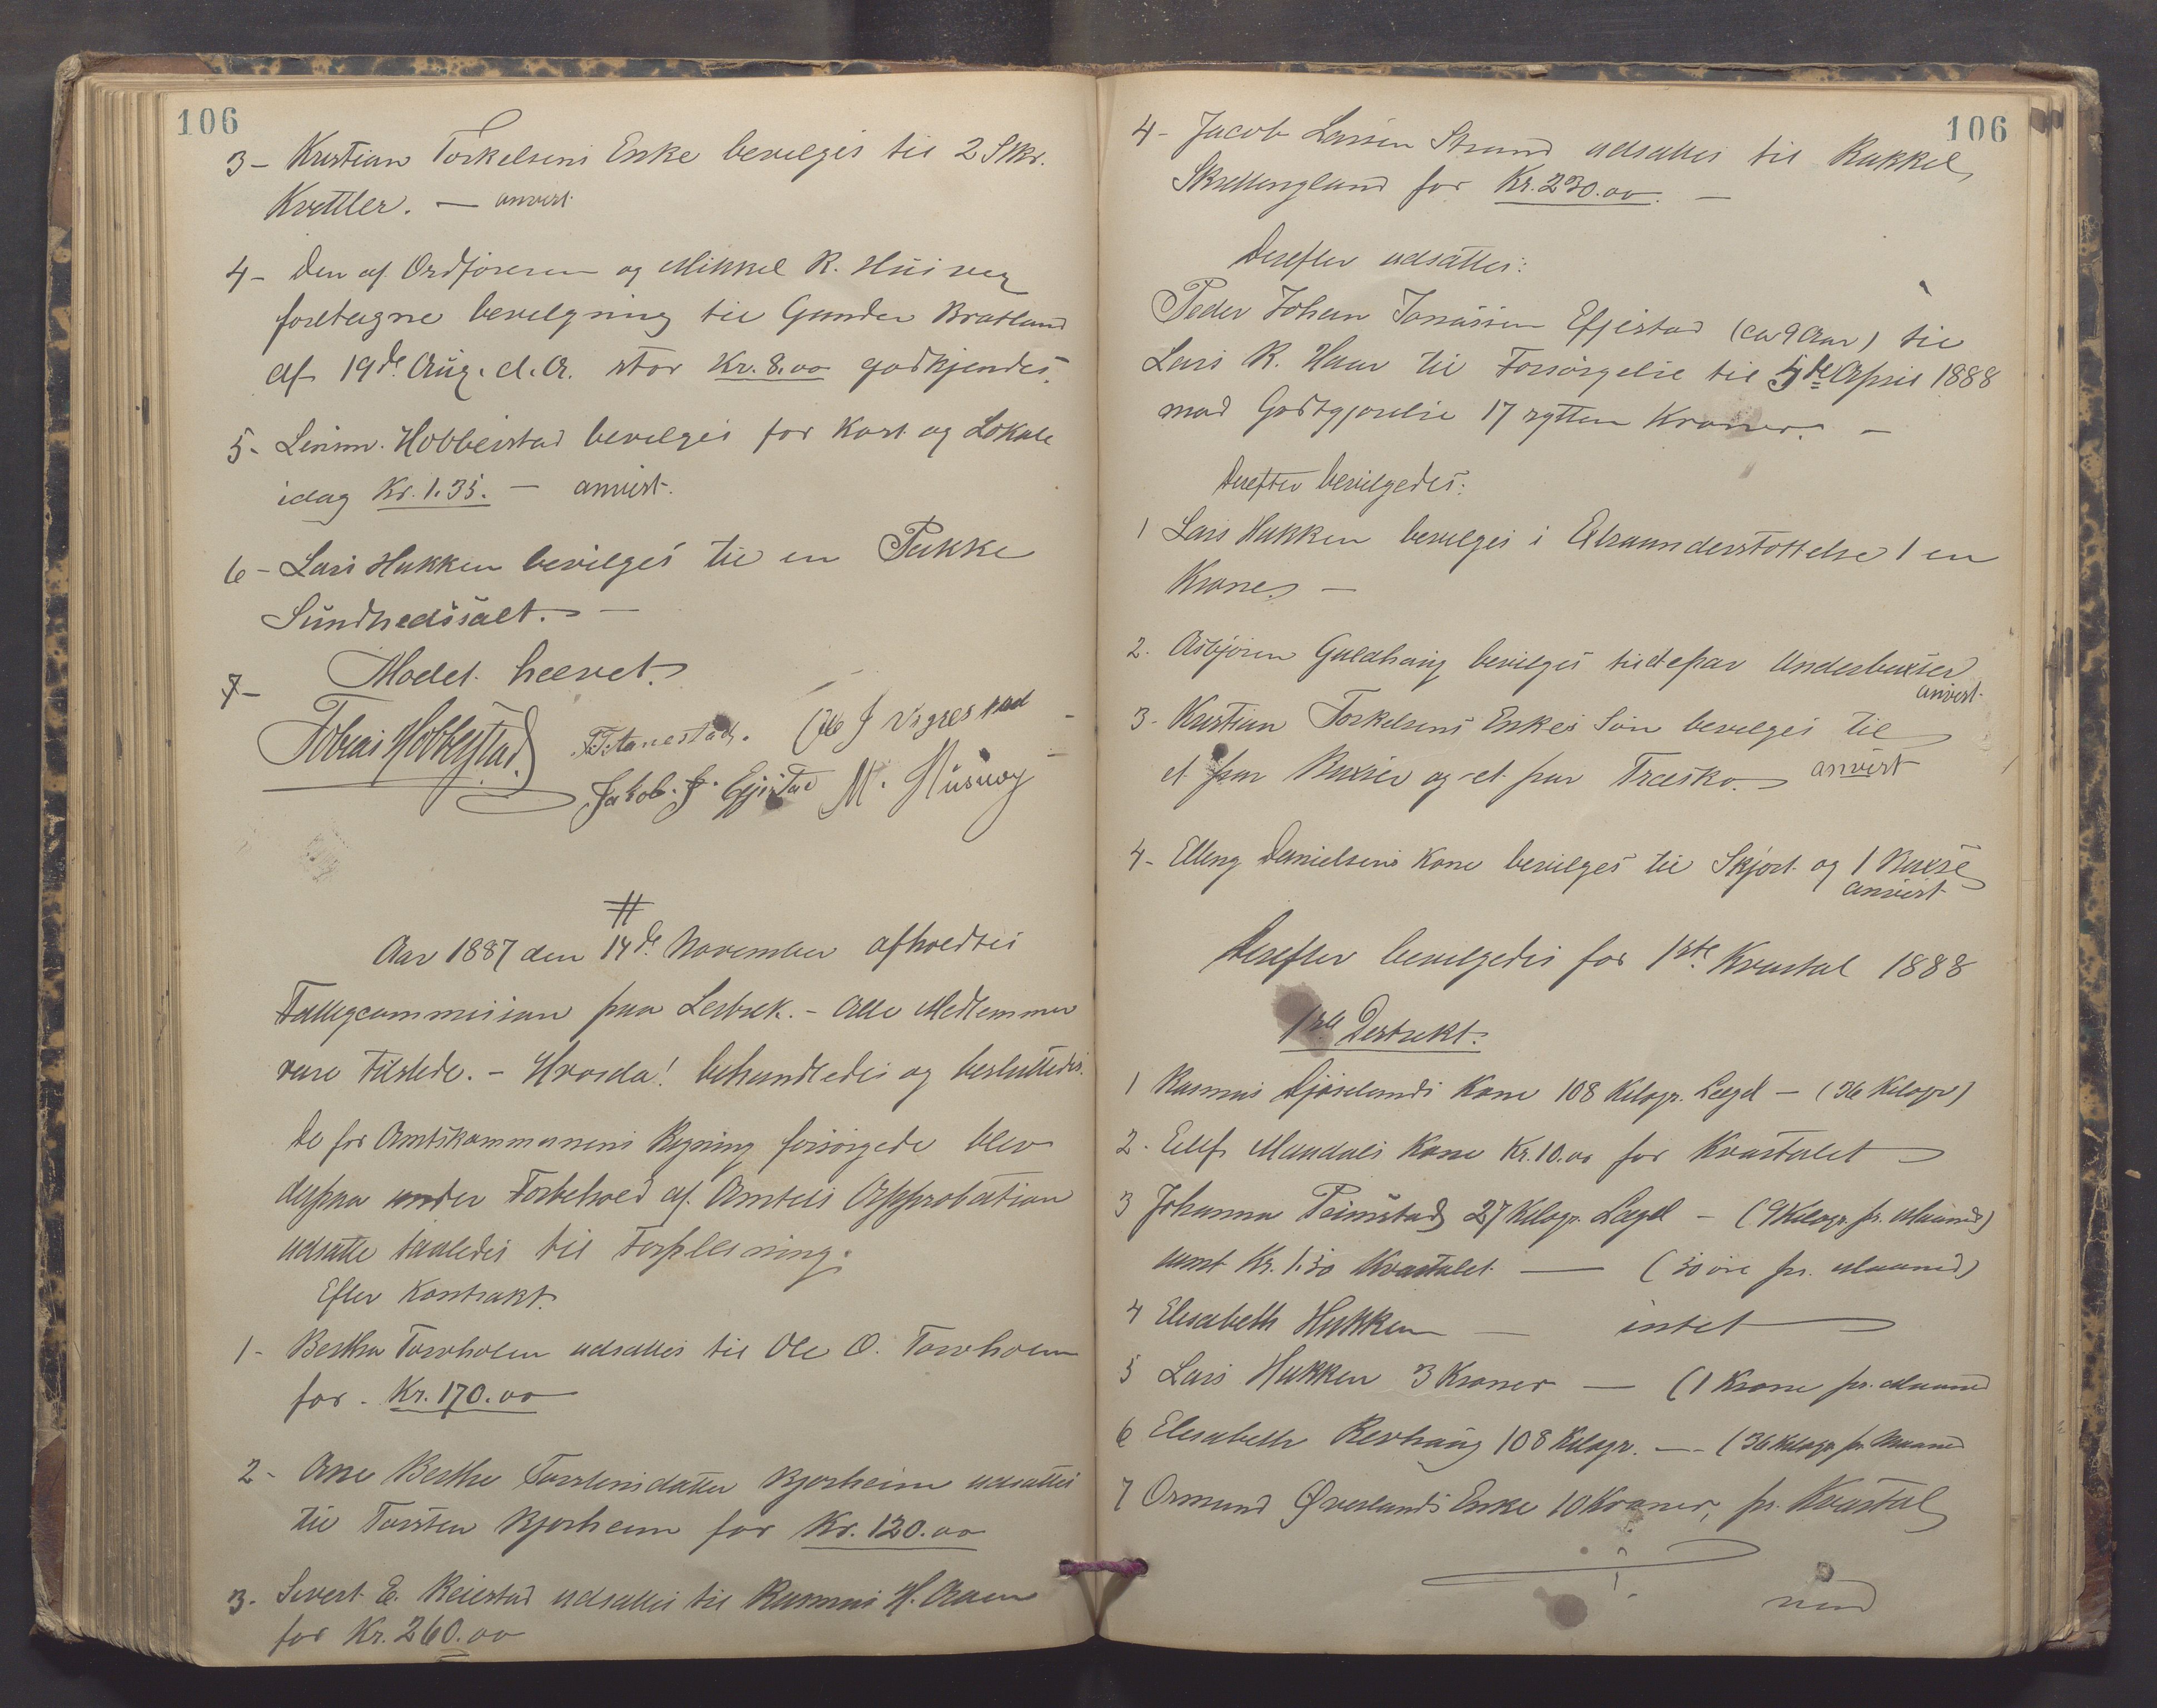 106
3- Kristian Torkelsens Enke bevilges til 2 Stkr.
Kjettler. — anvist
4- Den af Ordføreren og Mikkel R. Husveg
foretagne bevilgning til Gunder Bratland
af 19de Aug. d. A. stor Kr. 8.00 godkjendes.
5- Lensm. Hobberstad bevilges for Kost og Lokale
idag Kr. 1.35. — anvist.
6- Lars Hukken bevilges til en Pakke
Sundhedssalt. —
7- Modet hævet.
Tobias Hobberstad. T. Tanestad. Ole J Vignestad
Jakob. J. Efjestad M. Husvog
#
Aar 1887 den 14de November afholdtes
Fattigcommision paa Lerbrek. - Alle Medlemmer
vare tilstede. - Hvorda! behandledes og besluttedes.
De for Amtskommunens Regning forsørgede blev
derpaa under Forbehold af Amtets Approbation
udsatte saaledes til Forpleining:
Efter Kontrakt.
1- Bertha Torrholen udsattes til Ole O. Torrholen
for . Kr. 170.00
2- Ane Berthe Torstensdatter Bjorheim udsattes
til Torsten Bjorheim for Kr. 120.00
3. Sivert E. Reiestad udsattes til Rasmus H. Aaen
for Kr. 260.00
106
4- Jacob Larsen Strand udsattes til Rakkel
Skrellingland for Kr. 230.00. —
Derefter udsattes:
Peder Johan Jonassen Efjestad (ca 9 Aar) til
Lars R. Haar til Forsørgelse til 5te April 1888
mod Godtgjorelse 17 sytten Kroner. —
Derefter bevilgedes:
1 Lars Hukken bevilges i Extraunderstøttelse 1 en
Krone. —
2. Asbjørn Guldhaug bevilges til et par Underbuxser
anvist
3. Kristian Torkelsens Enkes Søn bevilges til
et par Buxser og et par Træsko. anvist
4- Elling Danielsens Kone bevilges til Skjort og 1 Buxse
anvist
Derefter bevilgedes for 1ste Kvartal 1888
1ste Destrekt.
1 Rasmus Djøselands Kone 108 Kilogr. Lægd — (36 Kilogr)
2. Eilef Maudals Kone Kr. 10.00 for Kvartalet
3 Johanna Peimstad 27 Kilogr. Lægd — (9 Kilogr. pr. Maaned)
samt Kr. 1.50 Kvartalet — (50 øre pr. Maaned)
4 Elisabeth Hukken — intet
5 Lars Hukken 3 Kroner — (1 Krone pr. Maaned
6 Elisabeth Revhaug 108 Kilogr. — (36 Kilogr pr Maaned
7 Ormund Øverlands Enke 10 Kroner, pr. Kvartal